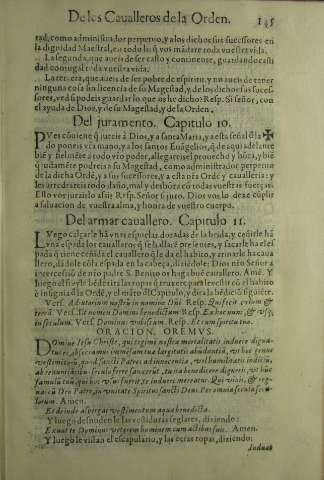 De los Caualleros de la Orden. 145
tad, como administrador perpetuo, y a los dichos sus sucessores en
la dignidad Maestral, en todo lo q̃ vos mãdare toda vuestra vida.
La segunda, que aueis de ser casto y continente, guardando casti
dad conjugal toda vuestra vida.
La tercera, que aueis de ser pobre de espiritu, y no aueis de tener
ninguna cosa sin licencia de su Magestad, y de los dichos sus sucef-
sores, ved si podeis guardar lo que os he dicho? Resp. Si señor, con
el ayuda de Dios, y de su Magestad, y de la Orden.
Del juramento. Capitulo 10.
PVes cõuiene q̃ jureis à Dios, y a santa Maria, y a esta señal dla ✠
do poneis vr̃a mano, y a los santos Euãgelios, q̃ de aqui adelante
biẽ y fielmẽte à todo vr̃o poder, allegareis el prouecho y hõra, y biẽ
q̃ judamẽte podreis a su Magestad, como administrador perpetuo
de la dicha Ordẽ, y a sus sucessores, y a esta nr̃a Ordẽ y caualleria: y
les arredrareis todo daño, mal y
Ello vos jurais lo assi? Resp. Señor si juro. Dios vos lo dexe cũplir
a saluacion de vuestra alma, y honra de vuestro cuerpo.
Del armar cauallero. Capitulo 11.
LVego calçarle hã vnas espuelas doradas de la brida, y ceñirle hã
vna espada los caualleros q̃ se hallarẽ presentes, y sacarle ha el es
pada q̃ tiene ceñida el cauallero q̃ le da el habito, y armarle ha caua
llero, dãdole cõ la espada en la cabeça, diziẽdole: Dios nr̃o Señor a
intercessiõ de nr̃o padre S. Benito os haga buẽ cauallero. Amẽ. Y
luego el
è insignia dla Ordẽ, y el mãto dl Capitulo, y dira la bẽdiciõ siguiẽte.
Vers. Adiutorium nostrũ in nomine Dñi. Resp. Qui fecit cælum &
terrã. Vers. Sit nomen Domini benedictum Resp. Ex hoc nunc, & vsq;
in sæculum. Vers. Dominus vobiscum. Resp. Et cum spiritu tuo.
ORACION. OREMVS.
Domine Iesu Christe, qui tegimen nostræ mortalitatis induere digna-
tus es, obsecramus immensam tuæ largitatis abundantiã, vt hoc genus
vestimenti, quod sancti Patres ad innocentiæ, vel humilitatis indiciũ,
ab renunciãtibus sæculo ferre sanxerunt, tu ita benedicere digneris, vt hic
famulus tuus, qui hoc vsus fuerit, te induere mereatur. Qui viuis, & reg-
nas cũ Deo Patre, in vnitate Spiritus sancti Deus Per omnia sæcula sæcu-
lorum. Amen.
Et deinde aspergat vestimentum aqua benedicta.
Y luego desnuden le las vestiduras seglares, diziendo:
Exuat te Dominus veterem hominem cum actibus suis. Amen.
Y luego le vistan el escapulario, y las otras ropas, diziendo:
Induat